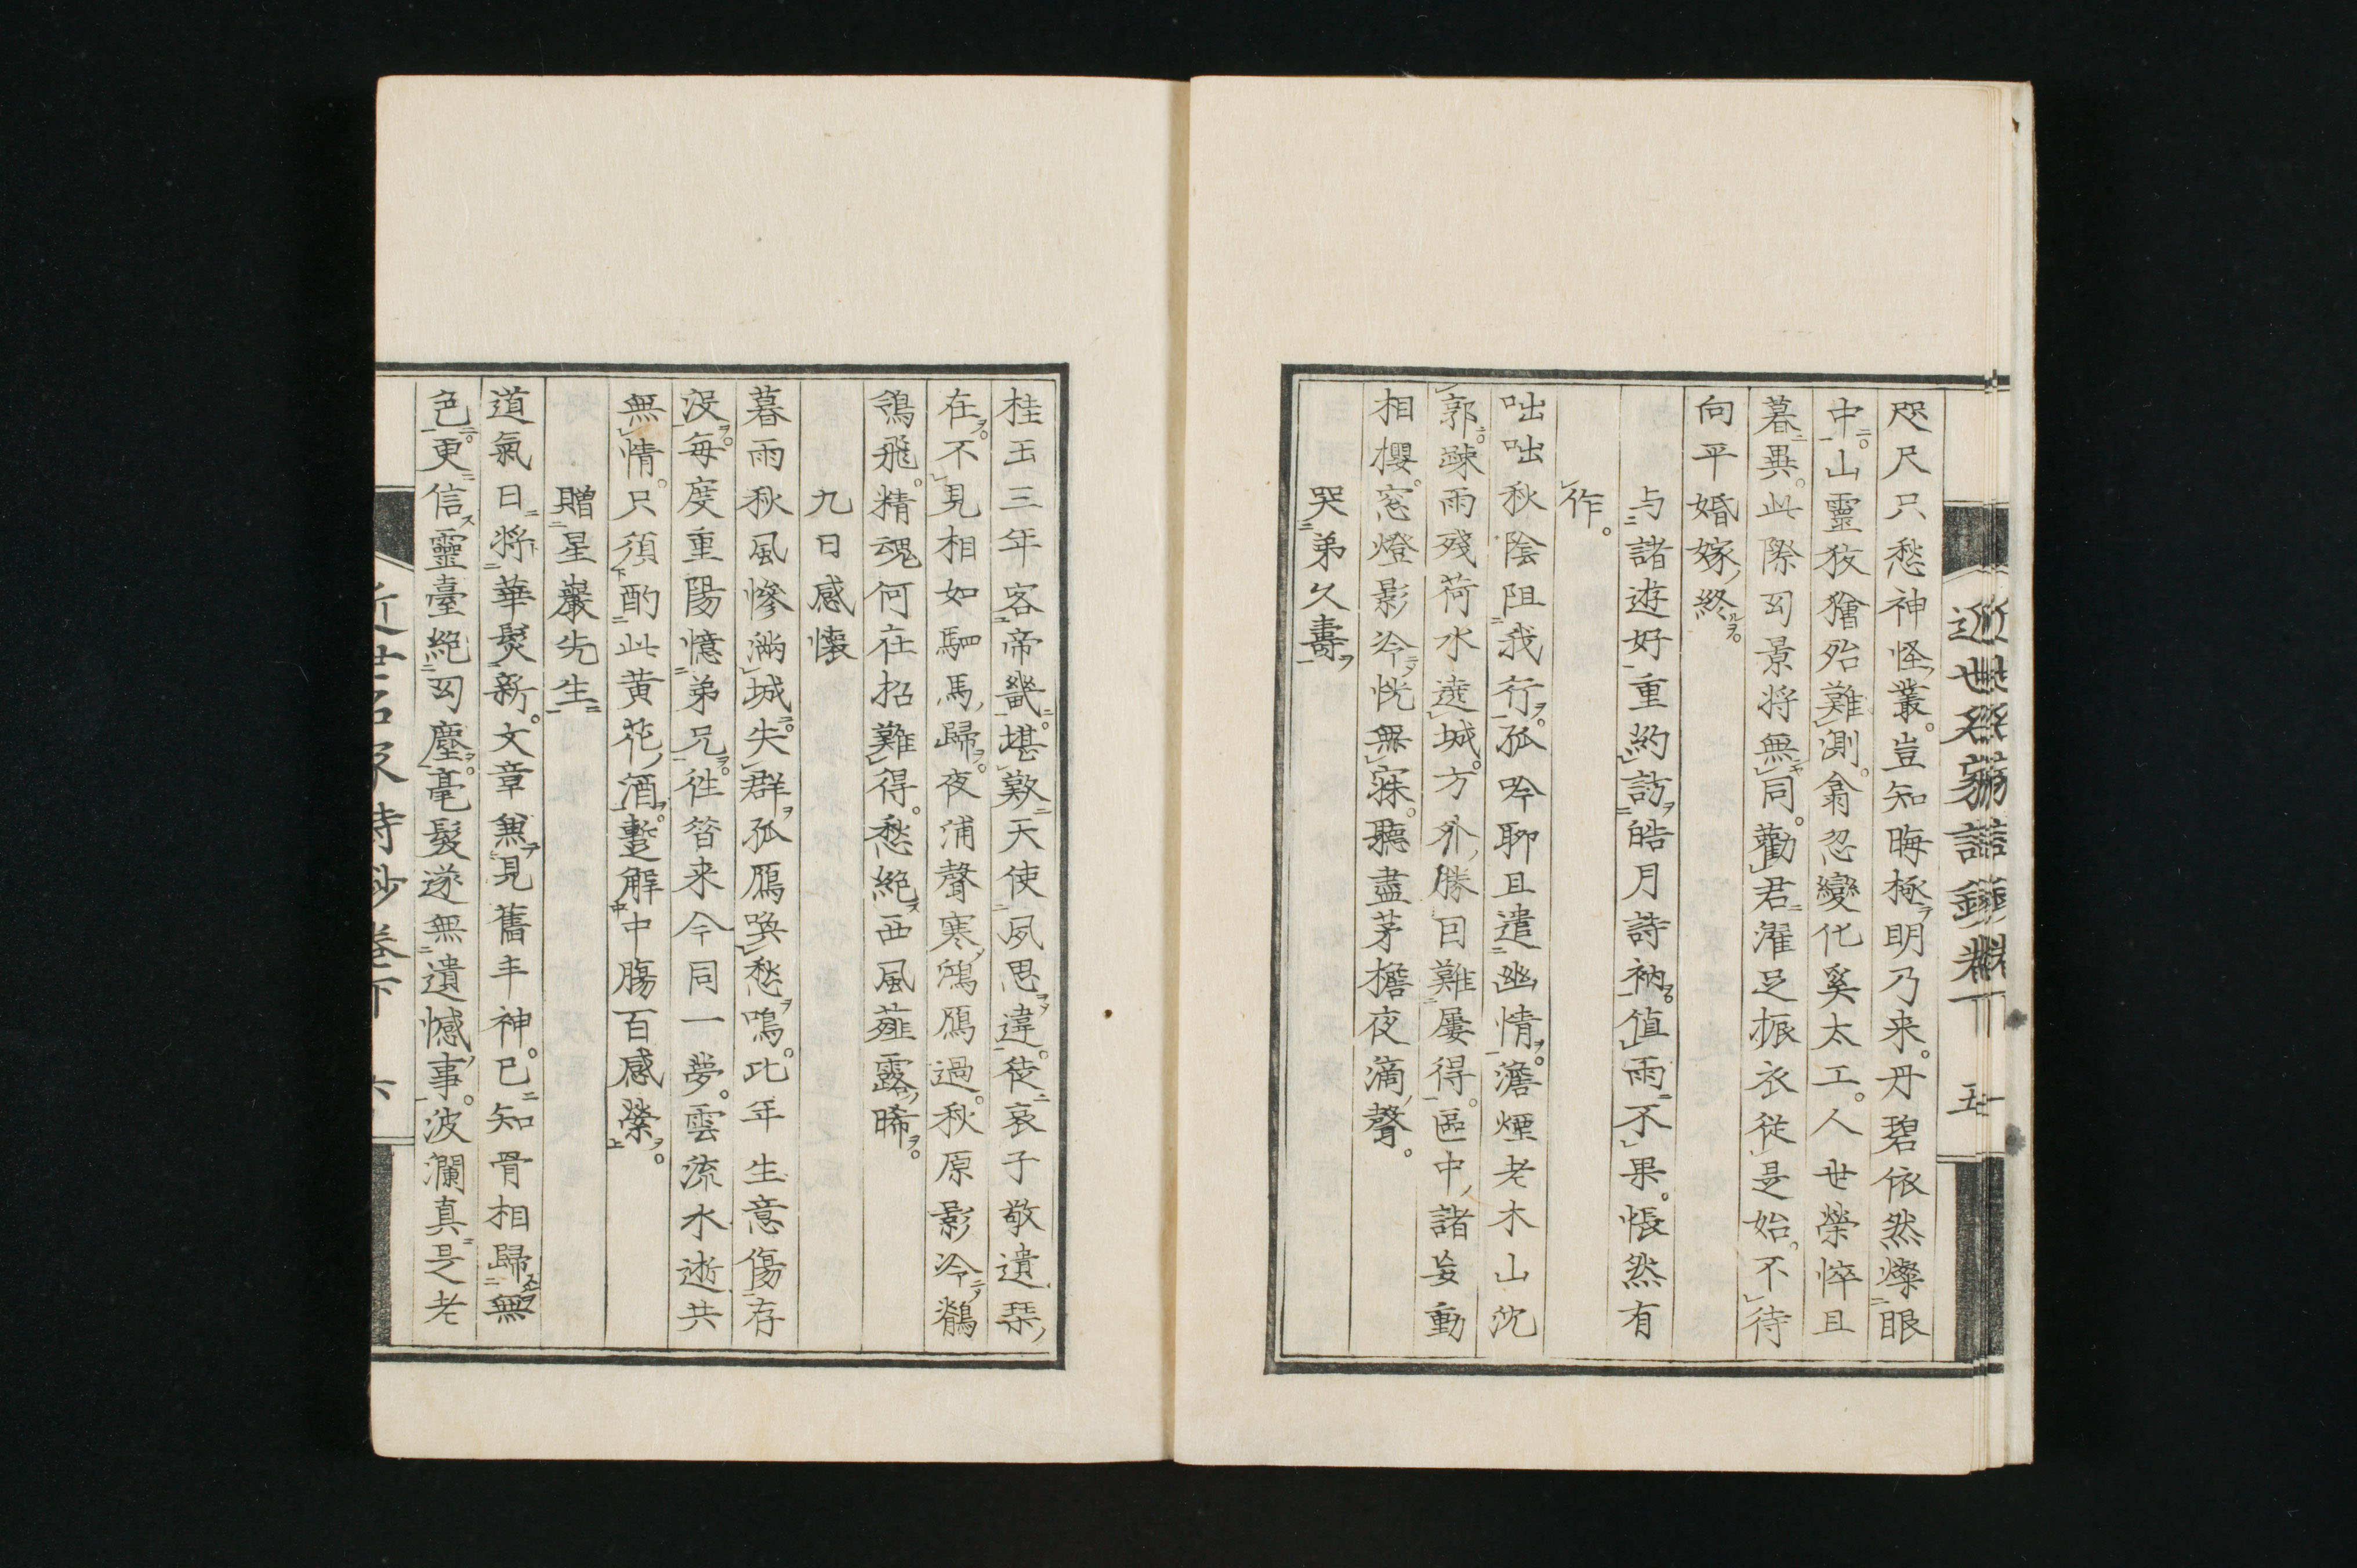 咫尺只愁神怪叢。豈知晦極明乃来。丹碧依然燦眼
中。山靈狡獪殆難測。翕忽變化奚太工。人世榮悴且
暮異。此際匃景将無同。勸君濯足振衣従是始。不待
向平婚嫁終。
与諸遊好重約訪皓月詩衲。値雨不果。悵然有
作。
咄咄秋陰阻我行。孤吟聊且遣幽情。澹煙老木山沈
郭。疎雨殘荷水遶城。方外勝日難屢得。區中諸妄動
相攖。窓燈影冷恍無寐。聽盡茅檐夜滴聲。
哭弟久壽
桂玉三年客帝畿。堪歎天使夙思違。徒哀子敬遺琹
在。不見相如駟馬歸。夜浦聲寒鴻鴈過。秋原影冷鶺
鴒飛。精魂何在招難得。愁絶西風薤露晞。
九日感懐
暮雨秋風慘満城。失群孤鴈喚愁鳴。此年生意傷存
没。毎度重陽憶弟兄。徃昝来今同一夢。雲流水逝共
無情。只須酌此黄花酒。蹔解中膓百感縈。
贈星巖先生
道氣日将華髪新。文章兼見舊丰神。已知骨相歸無
色。更信靈臺絶匃塵。毫髮遂無遺憾事。波瀾真是老
近世名家詩鈔巻下 五